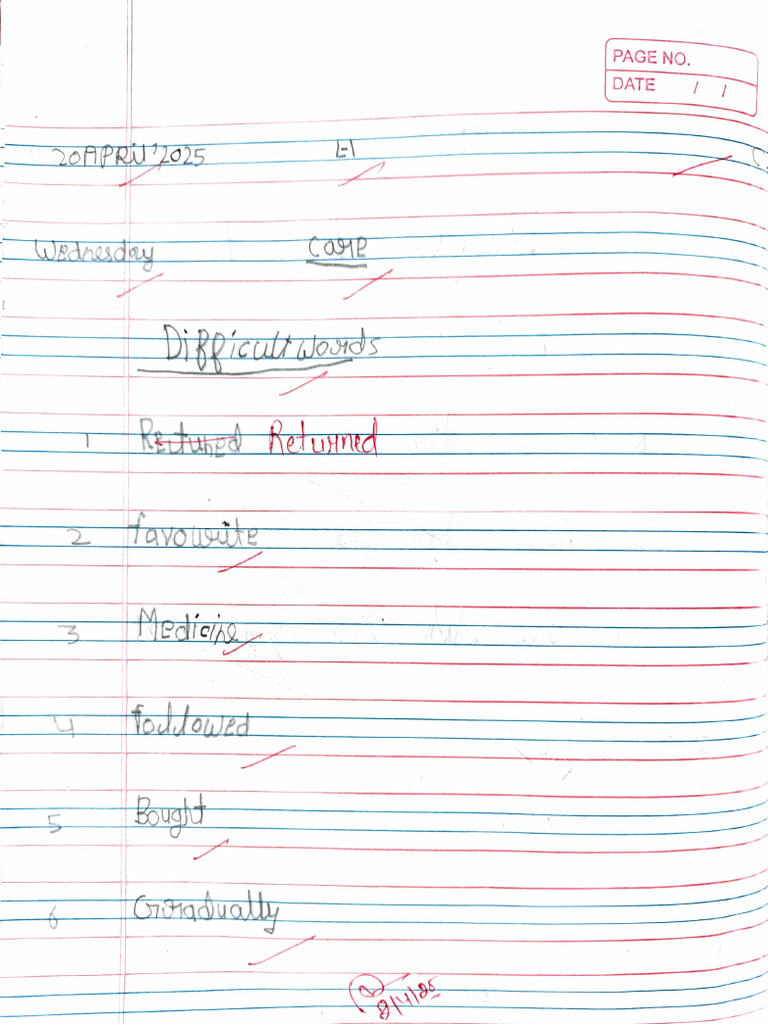 PAGE NO.
DATE / /
20 APRil '2025 L-1
Wednesday care
Difficult words
1 Retuned Returned
2 favourite
3 Medicine
4 followed
5 Bought
6 Gradually
2/4/25